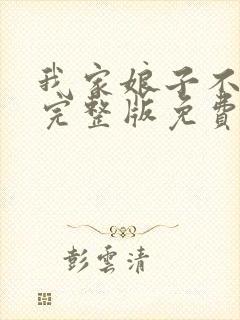 我家娘子不
完整版免費
彭雲清